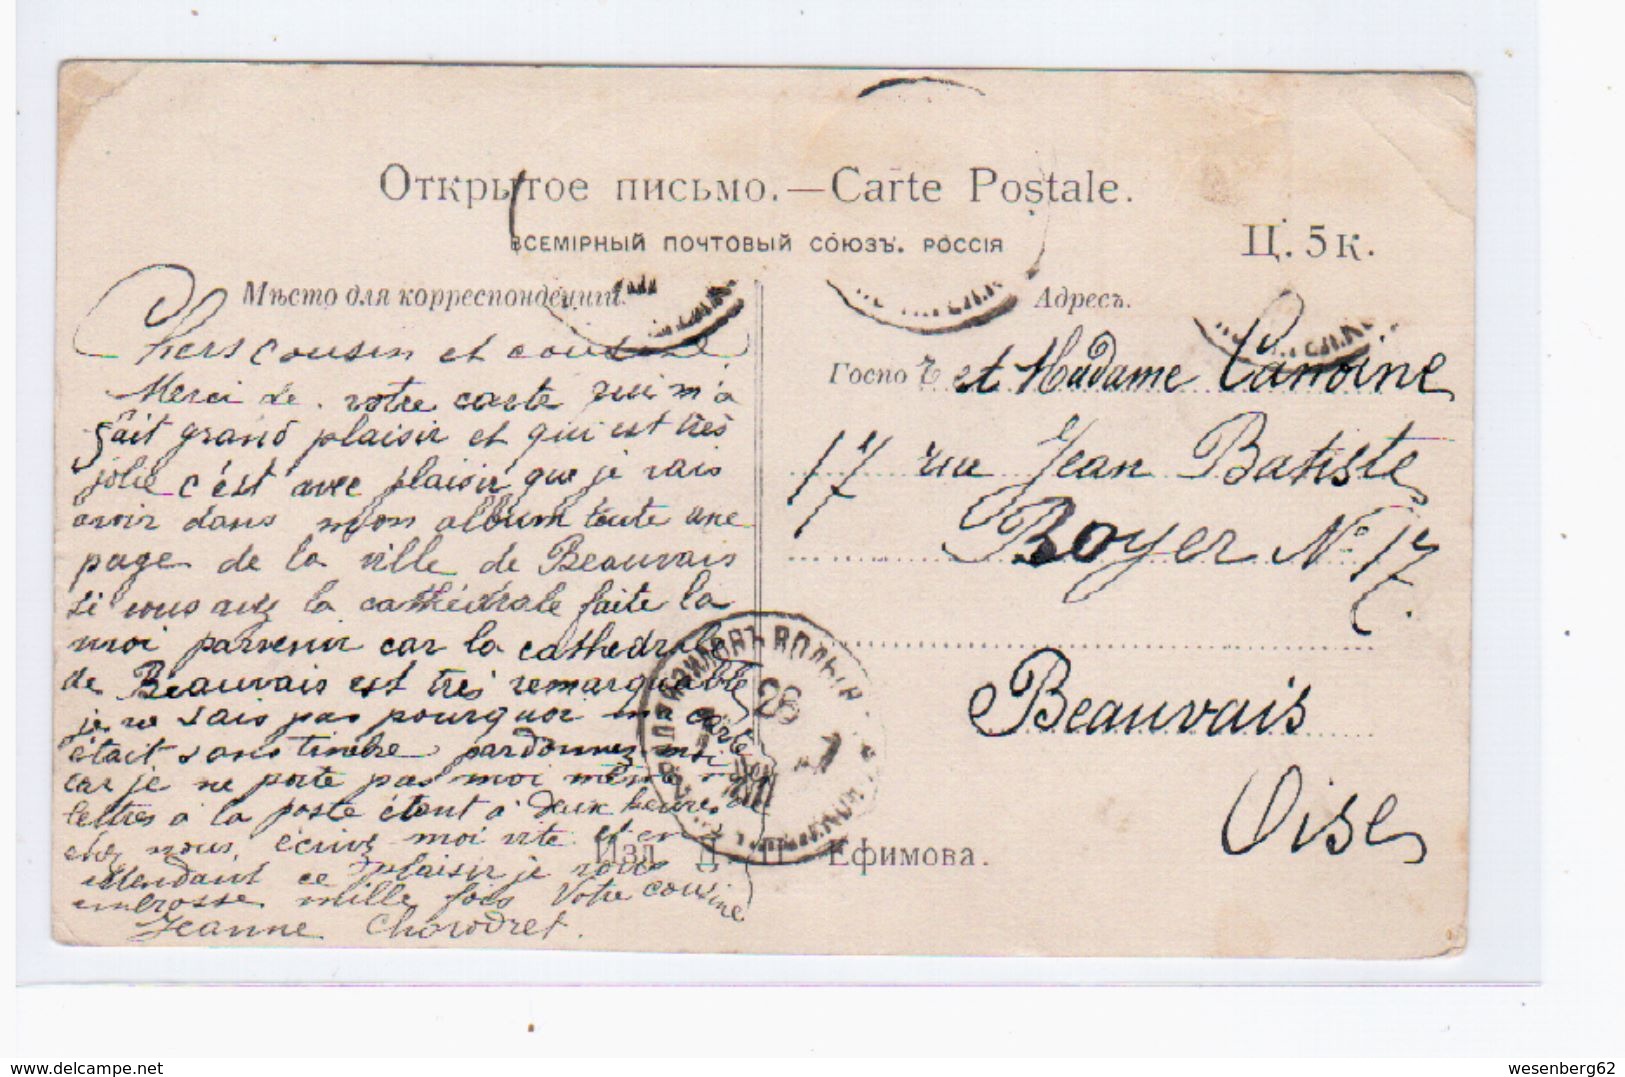 Открытое письмо. — Carte Postale.
ВСЕМІРНЫЙ ПОЧТОВЫЙ СОЮЗЪ. РОССІЯ
Ц. 5 к.
Мѣсто для корреспонденціи.
Адресъ.
Chers cousin et cousine
Merci de votre carte qui m'a
fait grand plaisir et qui est très
jolie c'est avec plaisir que je vais
avoir dans mon album toute une
page de la ville de Beauvais
si vous avez la cathédrale faite la
moi parvenir car la cathedrale
de Beauvais est très remarquable
je ne sais pas pourquoi ma carte
était sans timbre pardonnez moi
car je ne porte pas moi même
lettres à la poste étant à deux heures de
chez nous, écrivez moi vite et en
attendant ce plaisir je vous
embrasse mille fois Votre cousine
Jeanne
Госпо et Madame Canoine
17 rue Jean Batiste
Boyer No 17
Beauvais
Oise
26
Изд. Д. П. Ефимова.
www.delcampe.net
wesenberg62